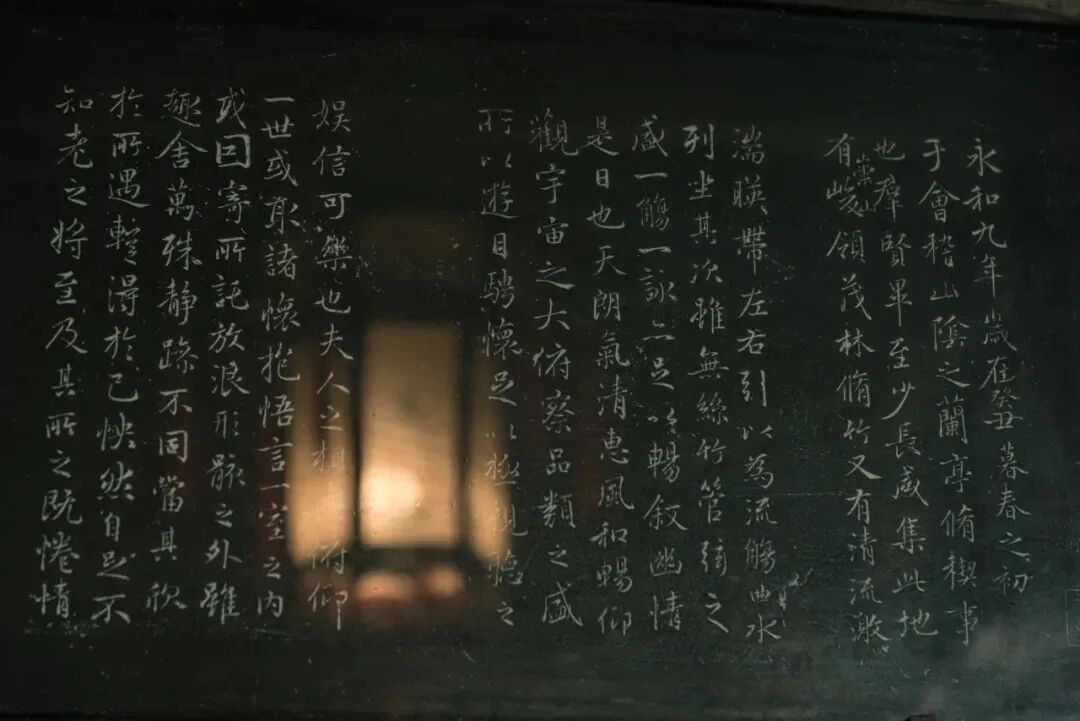 永和九年歲在癸丑暮春之初
于會稽山陰之蘭亭脩稧事
也羣賢畢至少長咸集此地
有崇山峻領茂林脩竹又有清流激
湍暎帶左右引以為流觴曲水
列坐其次雖無絲竹管弦之
盛一觴一詠亦足以暢叙幽情
是日也天朗氣清惠風和暢仰
觀宇宙之大俯察品類之盛
所以遊目騁懷足以極視聽之
娛信可樂也夫人之相俯仰
一世或取諸懷抱悟言一室之內
或因寄所託放浪形骸之外雖
趣舍萬殊靜躁不同當其欣
於所遇暫得於己怏然自足不
知老之將至及其所之既惓情